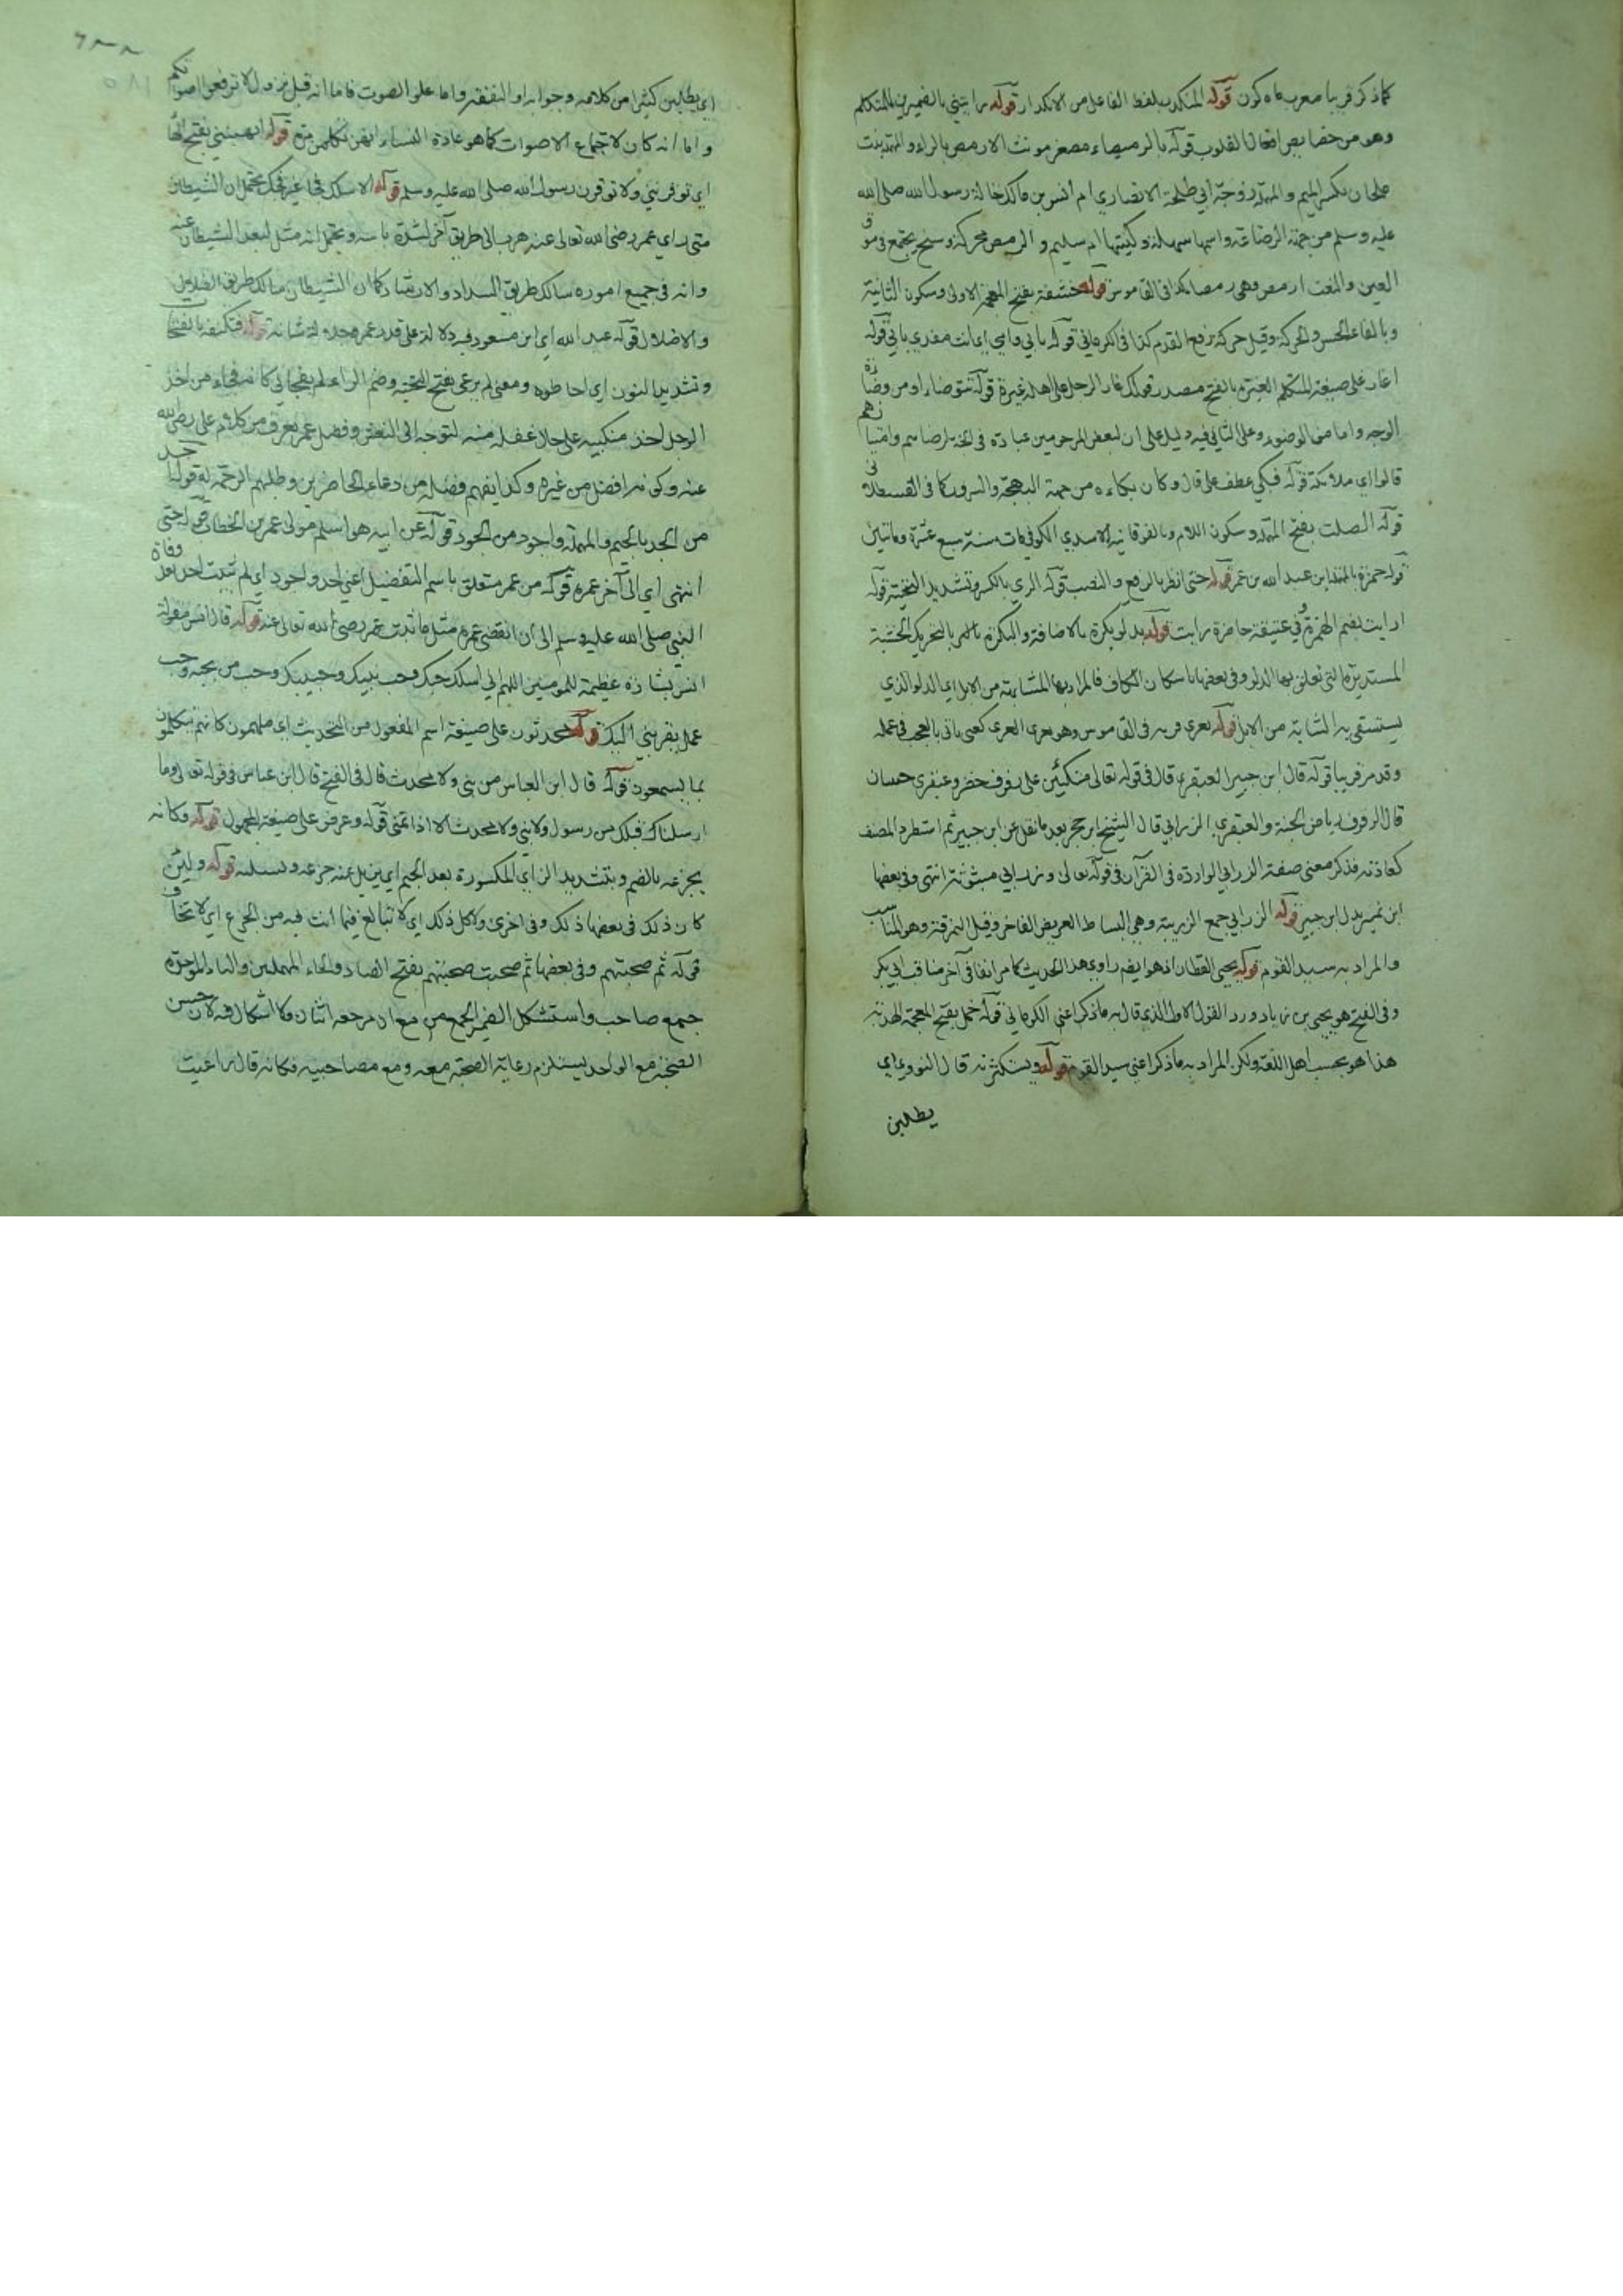 كما ذكر قريبا معرب ماه كون قوله المنكدر بلفظ الفاعل من الانكدار قوله رايتني بالضميرين للمتكلم
وهو من خصايص افعال القلوب قوله بالرميصاء مصغر مونث الارمص بالراء والمهملة بنت
ملحان بكسر الميم والمهملة زوجة ابي طلحة الانصاري ام انس بن مالك خالة رسول الله صلى الله
عليه وسلم من جهة الرضاعة واسمها سهلة وكنيتها ام سليم والرمص محركة وسخ يجتمع في موق
العين والنعت ارمص وهي رمصا كذا في القاموس قوله خشفة بفتح المعجمة الاولى وسكون الثانية
وبالفاء الحس والحركة وقيل حركة وقع القدم كذا في الكرماني قوله بابي وامي اي انت مفدي بابي قوله
اغار على صيغة المتكلم الغيرة بالفتح مصدر قولك غار الرجل على اهله غيرة قوله تتوضا اما من وضاءة
الوجه واما من الوضوء وعلى الثاني فيه دليل على ان لبعض المرحومين عبادة في الجنة برضاهم وامتيازهم
قالوا اي ملائكة قوله فبكى عطف على قال وكان بكاءه من جهة البهجة والسرور كما في القسطلاني
قوله الصلت بفتح المهملة وسكون اللام وبالفوقانية الاسدي الكوفي مات سنة سبع عشرة وماتين
قوله حمزة بالمهملة ابن عبد الله بن عمر قوله حتى انظر بالرفع والنصب قوله الري بالكسر وتشديد التحتية قوله
اريت بضم الهمزة وفي عتيقة حاضرة رايت قوله بدلو بكرة بالاضافة والبكرة بالتحريك الخشبة
المستديرة التي تعلق بها الدلو وفي بعضها باسكان الكاف فالمراد بها الشابة من الابل اي الدلو الذي
يستسقى به الشابة من الابل قوله يفري فريه في القاموس وهو يفري الفري كغني ياتي بالعجب في عمله
وقد مر قريبا قوله قال ابن جبير العبقري قال في قوله تعالى متكئين على رفرف خضر وعبقري حسان
قال الرفرف رياض الجنة والعبقري الزرابي قال الشيخ ابن حجر بعد ما نقل عن ابن جبير ثم استطرد المصنف
كعادته فذكر معنى صفة الزرابي الواردة في القرآن في قوله تعالى وزرابي مبثوثة انتهى وفي بعضها
ابن نمير بدل ابن جبير قوله الزرابي جمع الزربية وهي البساط العريض الفاخر وقيل النمرقة وهو المناسب
والمراد به سيد القوم قوله يحيى القطان اذ هو ايضا راوي هذا الحديث كما مر انفا في آخر مناقب ابي بكر
وفي الفتح هو يحيى بن زياد ورد القول الاول الذي قال به ما ذكر اعني الكرماني قوله خمل بفتح المعجمة الهدبة
هذا هو بحسب اهل اللغة ولكن المراد به ما ذكر اعني سيد القوم قوله ويستكثرنه قال النووي اي
يطلبن
٢٨٨
٥٨١
اي يطلبن كثيرا من كلامه وجوابه او النفقة واما علو الصوت فاما انه قبل نزول لا ترفعوا اصواتكم
واما انه كان لاجتماع الاصوات كما هو عادة النساء اذا تكلمن مع قوله اتهبنني بفتح الها
اي توقرنني ولا توقرون رسول الله صلى الله عليه وسلم قوله الا سلك فجا غير فجك يحتمل ان الشيطان
متى راى عمر رضي الله تعالى عنه هرب الى طريق آخر لشدة باسه ويحتمل انه مثل لبعد الشيطان عنه
وانه في جميع اموره سالك طريق السداد والارشاد كما ان الشيطان سالك طريق الضلال
والاضلال قوله عبد الله اي ابن مسعود فيه دلالة على قدر عمر وجلالة شانه قوله فتكنفه بالفتحات
وتشديد النون اي احاطوه ومعنى لم يرعني بفتح التحتية وضم الراء لم يفجاني كانه فجاءه من اخذ
الرجل اخذ منكبيه على حال غفلة منه لتوجه الى النعش وفضل عمر يعرف من كلام علي رضي الله
عنه وكونه افضل من غيره وكذا يفهم فضله من دعاء الحاضرين وطلبهم الرحمة له قوله اجد
من الجد بالجيم والمهملة واجود من الجود قوله عن ابيه هو اسلم مولى عمر بن الخطاب قوله حتى
انتهى اي الى آخر عمره قوله من عمر متعلق باسم التفضيل اعني اجد واجود اي لم يثبت احد بعد وفاة
النبي صلى الله عليه وسلم الى ان انقضى عمره مثل ما ثبت عمر رضي الله تعالى عنه قوله قال انس مقولة
انس بشارة عظيمة للمومنين اللهم اني اسئلك حبك وحب نبيك وحبيبك وحب من يحبه وحب
عمل يقربني اليك قوله محدثون على صيغة اسم المفعول من التحديث اي ملهمون كانهم يتكلمون
بما يسمعون قوله قال ابن العباس من نبي ولا محدث قال في الفتح قال ابن عباس في قوله تعالى وما
ارسلناك قبلك من رسول ولا نبي ولا محدث الا اذا تمنى قوله وعرض على صيغة المجهول قوله وكانه
يجزعه بالضم وبتشديد الزاي المكسورة بعد الجيم اي يزيل عنه جزعه ويسليه قوله ولئن
كان ذلك في بعضها ذلك وفي اخرى ولا كل ذلك اي لا تبالغ فيما انت فيه من الجزع اي لا تخاف
قوله ثم صحبتهم وفي بعضها ثم صحبت صحبتهم بفتح الصاد والحاء المهملتين والباء الموحدة
جمع صاحب واستشكل الضمير الجمع من مع ان مرجعه اثنان ولا اشكال فيه لان حسن
الصحبة مع الواحد يستلزم رعاية الصحبة معه ومع مصاحبيه فكانه قال راعيت